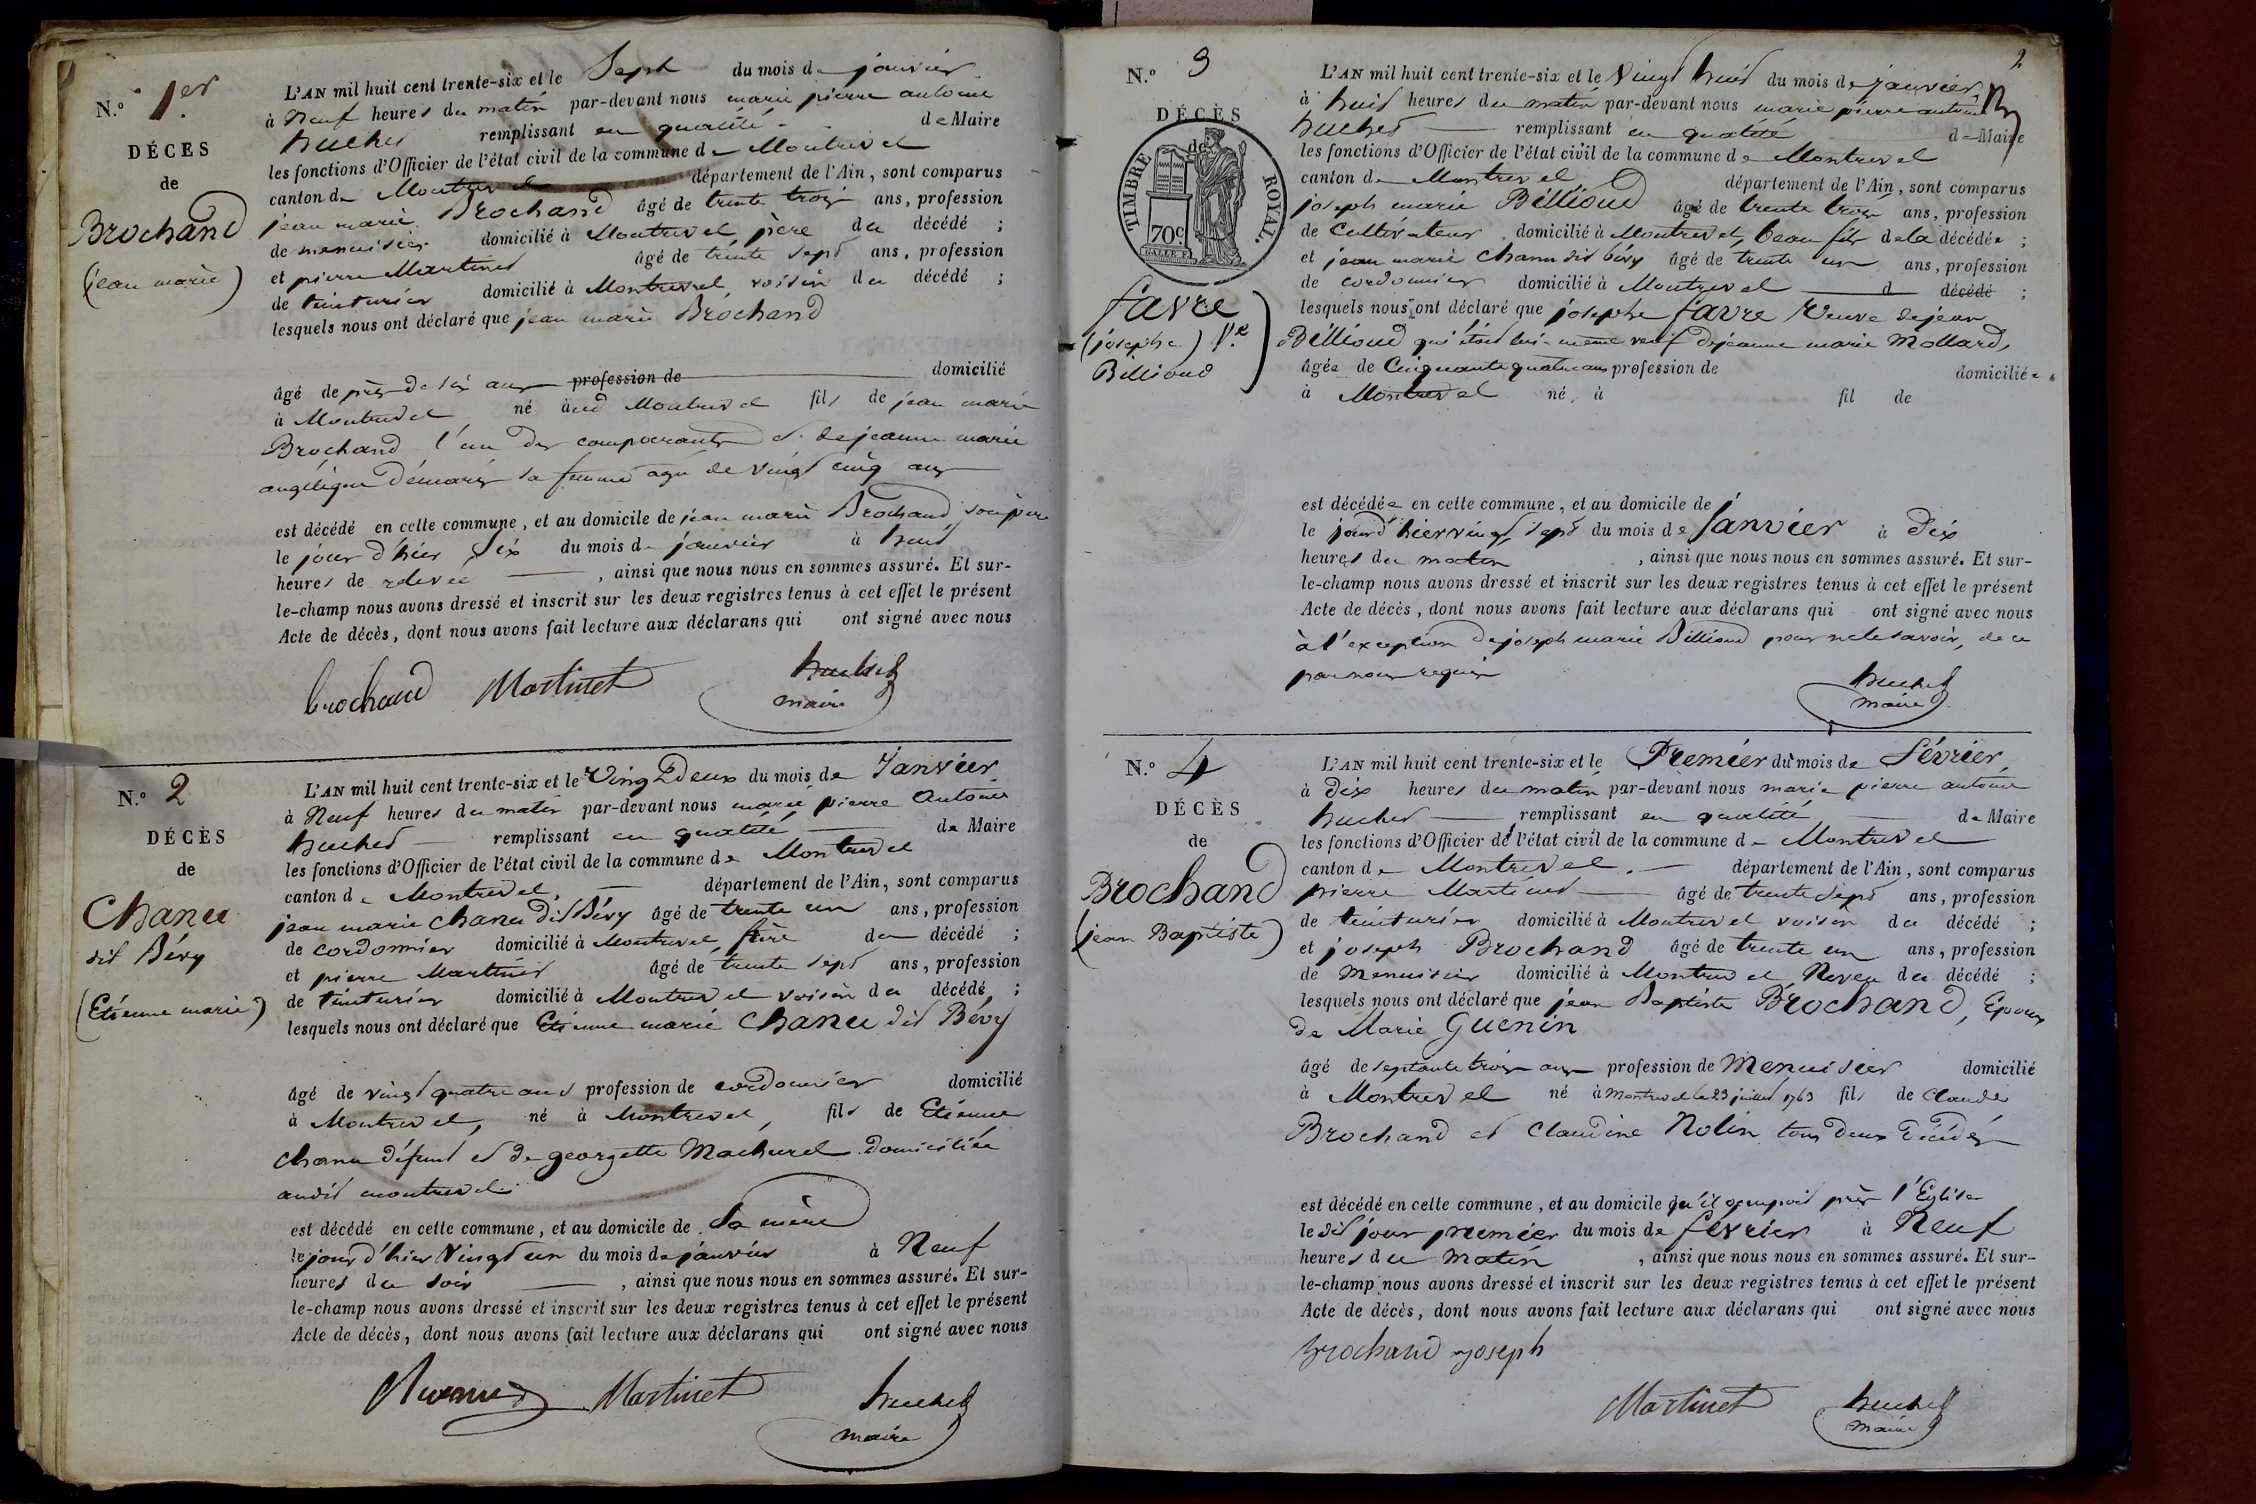 N.º 1.er
DÉCES
de
Brochand
(jean marie)
L'AN mil huit cent trente-six et le Sept du mois de janvier
à Neuf heures du matin par-devant nous marie pierre antoine
huchet remplissant en qualité de Maire
les fonctions d'Officier de l'état civil de la commune de Montrevel
canton de Montrevel département de l'Ain, sont comparus
jean marie Brochand âgé de trente trois ans, profession
de menuisier domicilié à Montrevel père du décédé ;
et pierre Martinet âgé de trente sept ans, profession
de teinturier domicilié à Montrevel, voisin du décédé ;
lesquels nous ont déclaré que jean marie Brochand
âgé de près de six ans profession de domicilié
à Montrevel né aud Montrevel fils de jean marie
Brochand l'un des comparants et de jeanne marie
angélique Démaris sa femme agée de vingt cinq ans
est décédé en cette commune, et au domicile de jean marie Brochand son père
le jour d'hier Six du mois de janvier à huit
heures de relevée , ainsi que nous nous en sommes assuré. Et sur-
le-champ nous avons dressé et inscrit sur les deux registres tenus à cet effet le présent
Acte de décès, dont nous avons fait lecture aux déclarans qui ont signé avec nous
brochand Martinet huchet
maire
N.º 2
DÉCÈS
de
Chanu
dit Bévy
(Etienne marie)
L'AN mil huit cent trente-six et le Vingt Deux du mois de Janvier
à Neuf heures du matin par-devant nous marie pierre Antoine
huchet remplissant en qualité de Maire
les fonctions d'Officier de l'état civil de la commune de Montrevel
canton de Montrevel, département de l'Ain, sont comparus
jean marie Chanu dit Bévy âgé de trente un ans, profession
de cordonnier domicilié à Montrevel, frère du décédé ;
et pierre Martinet âgé de trente sept ans, profession
de teinturier domicilié à Montrevel voisin du décédé ;
lesquels nous ont déclaré que Etienne marie Chanu dit Bévy
âgé de vingt quatre ans profession de cordonnier domicilié
à Montrevel, né à Montrevel, fils de Etienne
Chanu défunt et de georgette Machurel domiciliée
audit montrevel
est décédé en cette commune, et au domicile de Sa mère
le jour d'hier Vingt un du mois de janvier à Neuf
heures du soir , ainsi que nous nous en sommes assuré. Et sur-
le-champ nous avons dressé et inscrit sur les deux registres tenus à cet effet le présent
Acte de décès, dont nous avons fait lecture aux déclarans qui ont signé avec nous
Martinet huchet
maire
2
N.º 3
DÉCÈS
de
TIMBRE ROYAL.
70c
favre
(josephe) V.e
Billioud
L'AN mil huit cent trente-six et le Vingt huit du mois de janvier
à huit heures du matin par-devant nous marie pierre antoine
huchet remplissant en qualité de Maire
les fonctions d'Officier de l'état civil de la commune de Montrevel
canton de Montrevel département de l'Ain, sont comparus
joseph marie Billioud âgé de trente trois ans, profession
de Cultivateur domicilié à Montrevel, beau fils de la décédée ;
et jean marie Chanu dit bévy âgé de trente un ans, profession
de cordonnier domicilié à Montrevel d décédé ;
lesquels nous ont déclaré que josephe favre Veuve de jean
Billioud qui était lui-même veuf de jeanne marie Mollard,
âgée de Cinquante quatre ans profession de domiciliée
à Montrevel né à fil de
est décédée en cette commune, et au domicile de
le jour d'hier vingt sept du mois de Janvier à Dix
heures du matin , ainsi que nous nous en sommes assuré. Et sur-
le-champ nous avons dressé et inscrit sur les deux registres tenus à cet effet le présent
Acte de décès, dont nous avons fait lecture aux déclarans qui ont signé avec nous
à l'exception de joseph marie Billioud pour ne le savoir, de ce
par nous requis
huchet
maire
N.º 4
DÉCÈS
de
Brochand
(jean Baptiste)
L'AN mil huit cent trente-six et le Premier du mois de Février
à Dix heures du matin par-devant nous marie pierre antoine
huchet remplissant en qualité de Maire
les fonctions d'Officier de l'état civil de la commune de Montrevel
canton de Montrevel département de l'Ain, sont comparus
pierre Martinet âgé de trente sept ans, profession
de teinturier domicilié à Montrevel voisin du décédé ;
et joseph Brochand âgé de trente un ans, profession
de Menuisier domicilié à Montrevel Neveu du décédé ;
lesquels nous ont déclaré que jean Baptiste Brochand, Epoux
de Marie Guenin
âgé de septante trois ans profession de Menuisier domicilié
à Montrevel né à Montrevel le 23 juillet 1763 fils de Claude
Brochand et Claudine Nolin tous deux Décédés
est décédé en cette commune, et au domicile qu'il occupoit près l'Eglise
le dit jour premier du mois de février à Neuf
heures du Matin , ainsi que nous nous en sommes assuré. Et sur-
le-champ nous avons dressé et inscrit sur les deux registres tenus à cet effet le présent
Acte de décès, dont nous avons fait lecture aux déclarans qui ont signé avec nous
Brochand joseph
Martinet huchet
maire